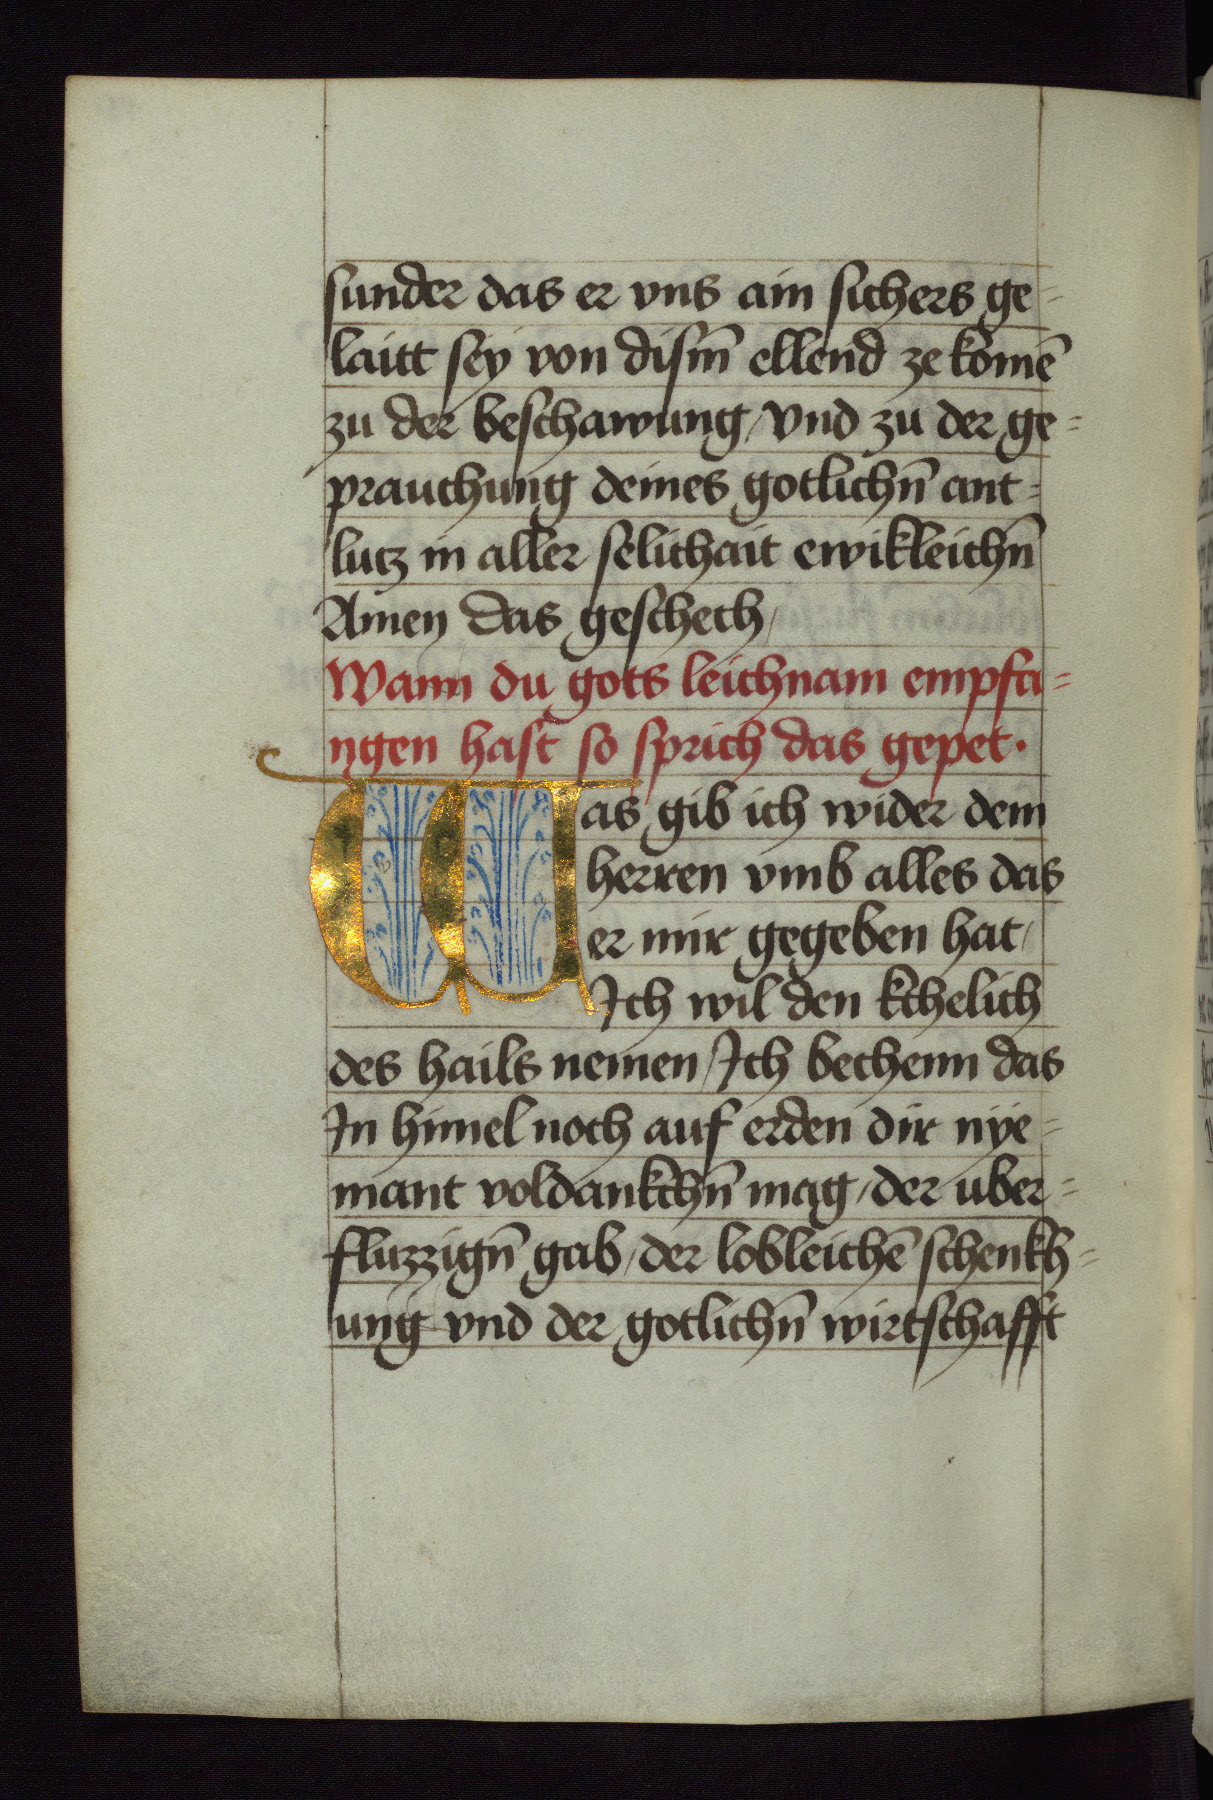 sunder das er vns ain sichers ge=
laitt sey von dism̄ ellend ze komē
zu der beschawung / vnd zu der ge=
prauchung deines gotlichn̄ ant=
lutz in aller selichait ewikleichn̄
Amen das geschech /
Wann du gots leichnam empfa=
ngen hast so sprich das gepet ·
Was gib ich wider dem
herren vmb alles das
er mir gegeben hat /
Ich wil den kchelich
des hails nemen / Ich bechenn das
In himel noch auf erden dir nye=
mant voldankchn̄ mag / der uber=
fluzzign̄ gab / der lobleichē schenkh=
ung vnd der gotlichn̄ wirtschafft